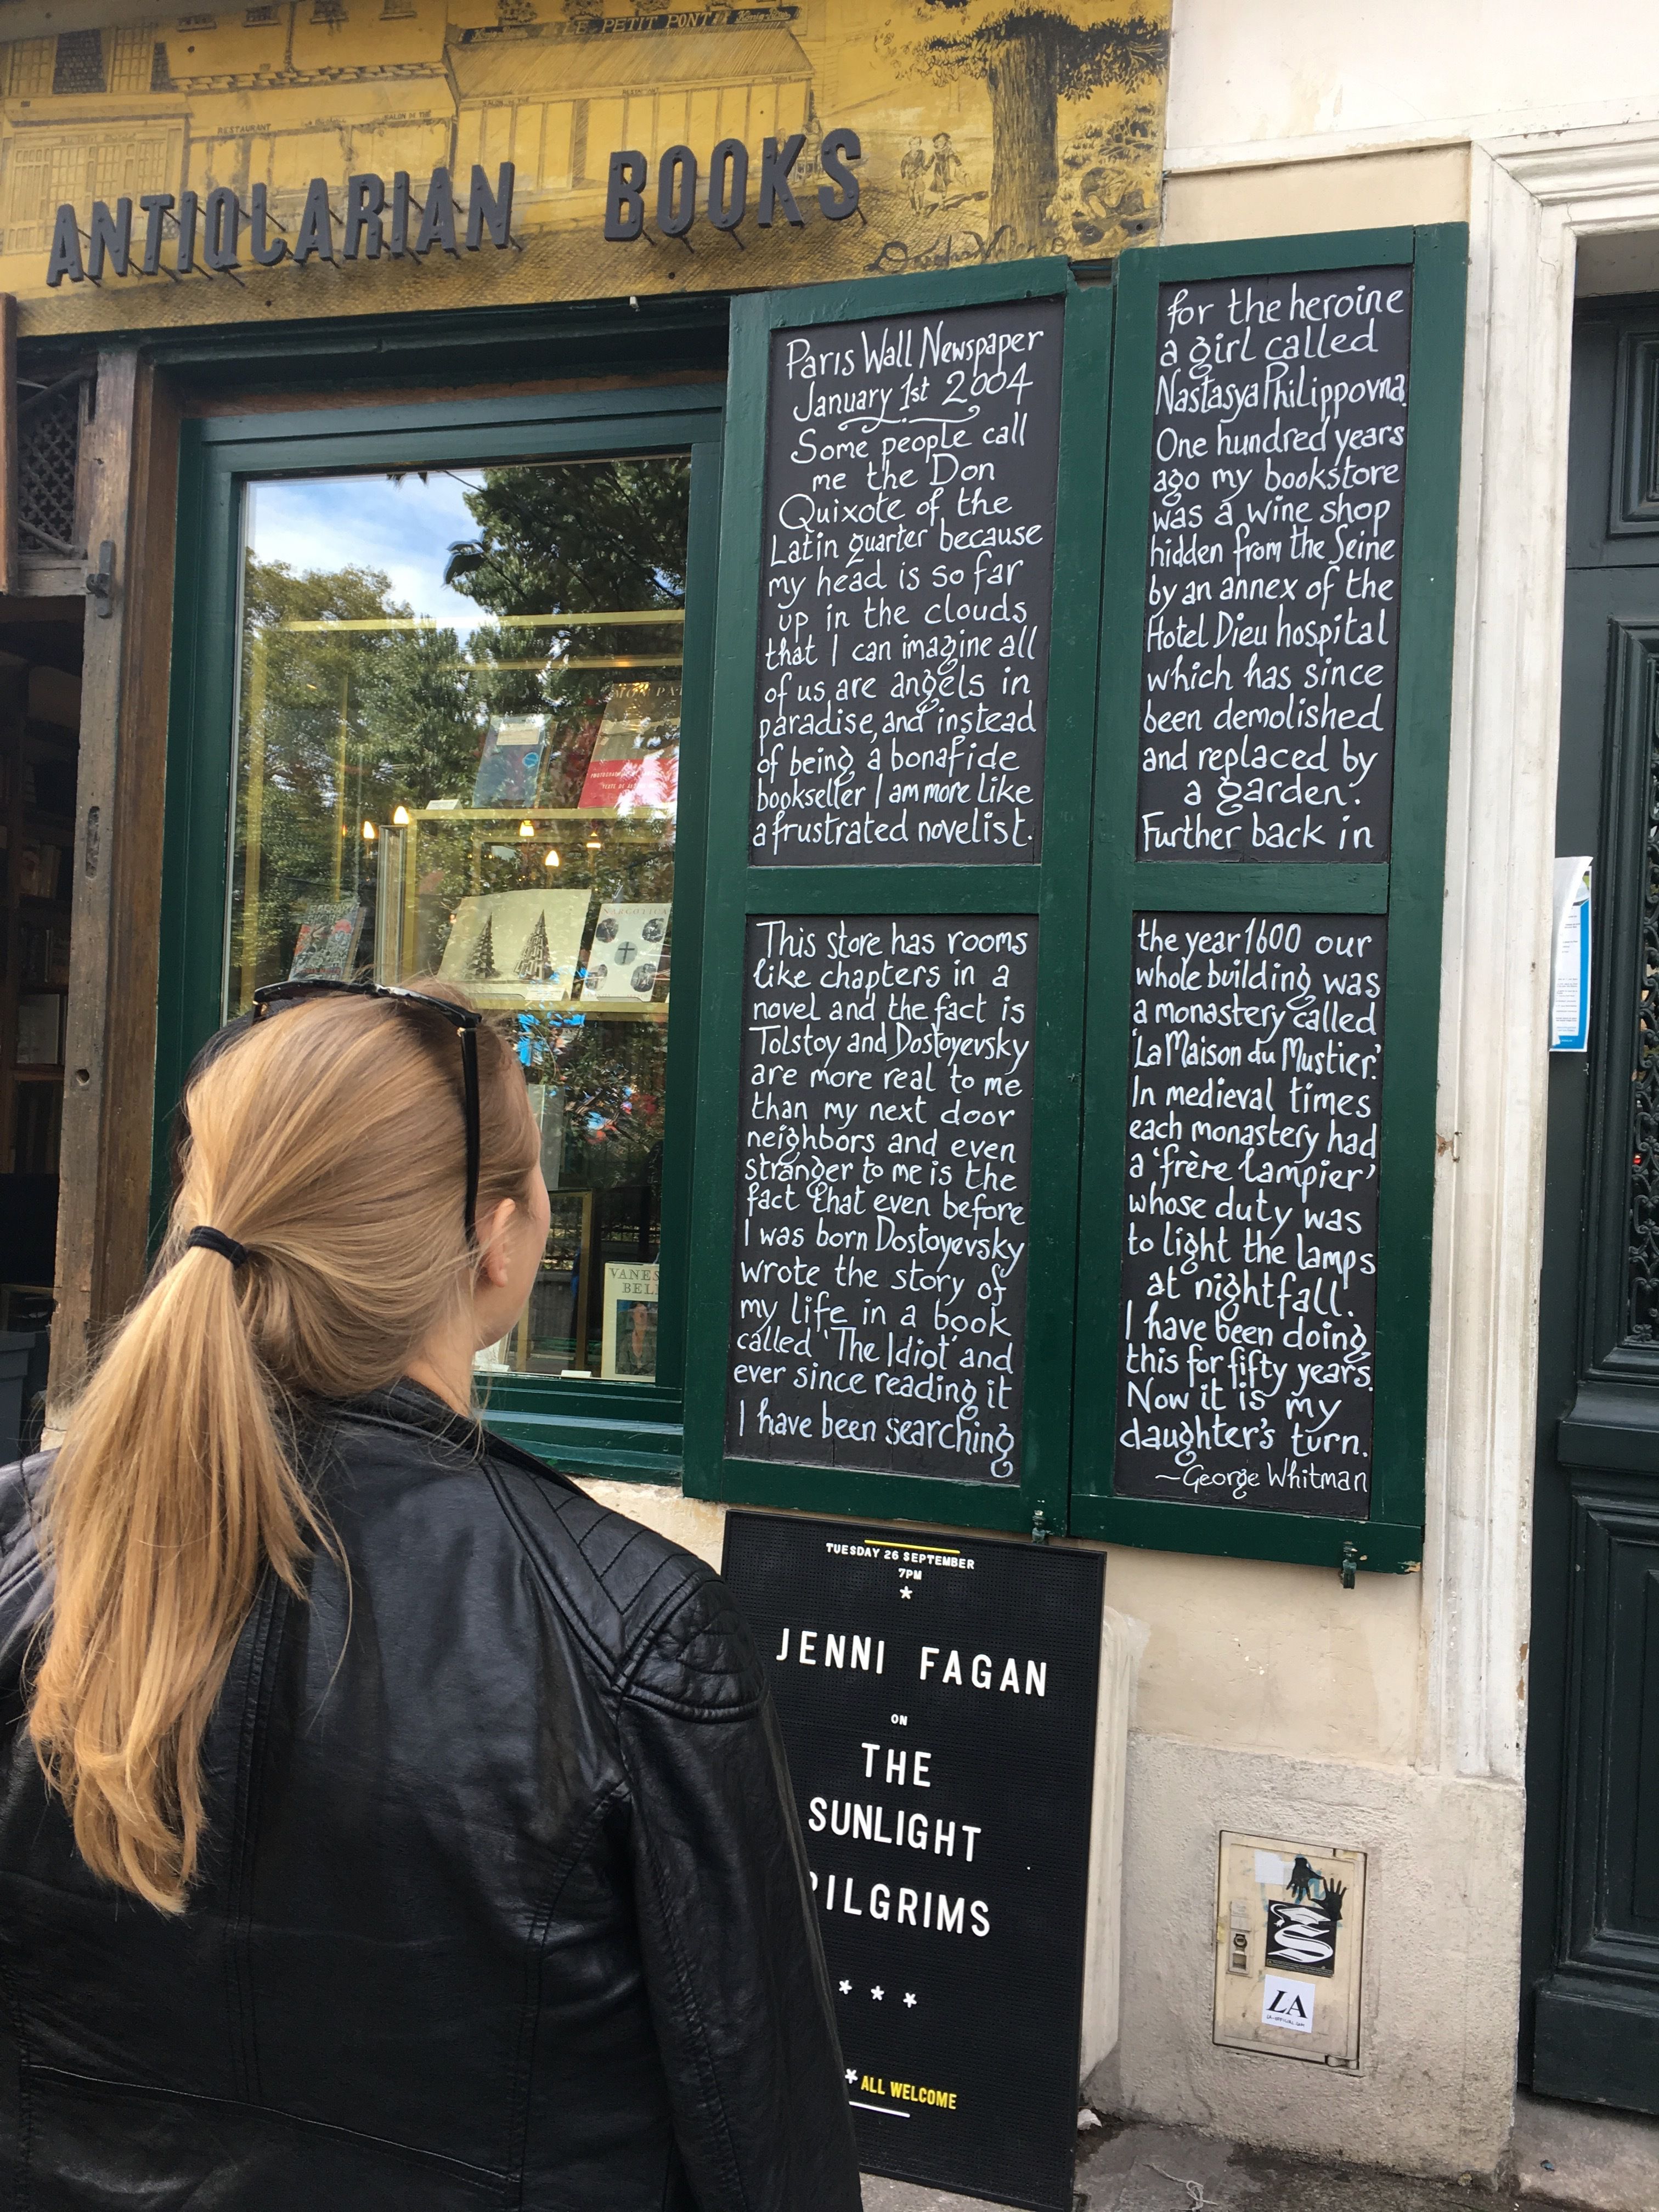 LE PETIT PONT
RESTAURANT
SALON DE THÉ
ANTIQUARIAN BOOKS
Paris Wall Newspaper
January 1st 2004
Some people call
me the Don
Quixote of the
Latin quarter because
my head is so far
up in the clouds
that I can imagine all
of us are angels in
paradise, and instead
of being a bonafide
bookseller I am more like
a frustrated novelist.
This store has rooms
like chapters in a
novel and the fact is
Tolstoy and Dostoyevsky
are more real to me
than my next door
neighbors and even
stranger to me is the
fact that even before
I was born Dostoyevsky
wrote the story of
my life in a book
called 'The Idiot' and
ever since reading it
I have been searching
for the heroine
a girl called
Nastasya Philippovna.
One hundred years
ago my bookstore
was a wine shop
hidden from the Seine
by an annex of the
Hotel Dieu hospital
which has since
been demolished
and replaced by
a garden.
Further back in
the year 1600 our
whole building was
a monastery called
'La Maison du Mustier.'
In medieval times
each monastery had
a 'frère lampier'
whose duty was
to light the lamps
at nightfall.
I have been doing
this for fifty years.
Now it is my
daughter's turn.
~George Whitman
VANES
BELL
TUESDAY 26 SEPTEMBER
7PM
*
JENNI FAGAN
ON
THE
SUNLIGHT
PILGRIMS
* * *
* ALL WELCOME
LA